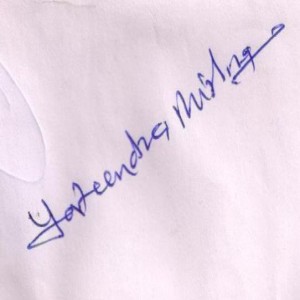 Yateendra Mishra